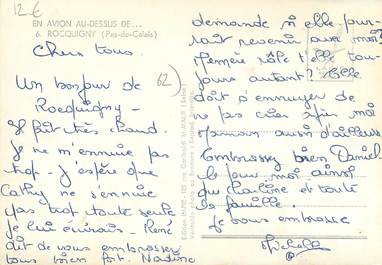 12 €
EN AVION AU-DESSUS DE...
6. ROCQUIGNY (Pas-de-Calais)
Chers tous.
Un bonjour de
Rocquigny -
62)
Il fait très chaud.
Je ne m'ennuie pas
trop. J'espère que
Cathy ne s'ennuie
pas trop toute seule
je lui écrirais - René
dit de vous embrasser
tous bien fort. Nadine
demande si elle pour-
rait revenir avec moi?
Mémère râle t'elle tou-
jours autant? Elle
doit s'ennuyer de
ne pas crier après moi
Maman aussi d'ailleurs
Embrassez bien Daniel
et pour moi ainsi
que Charline et toute
la famille.
je vous embrasse
Michelle